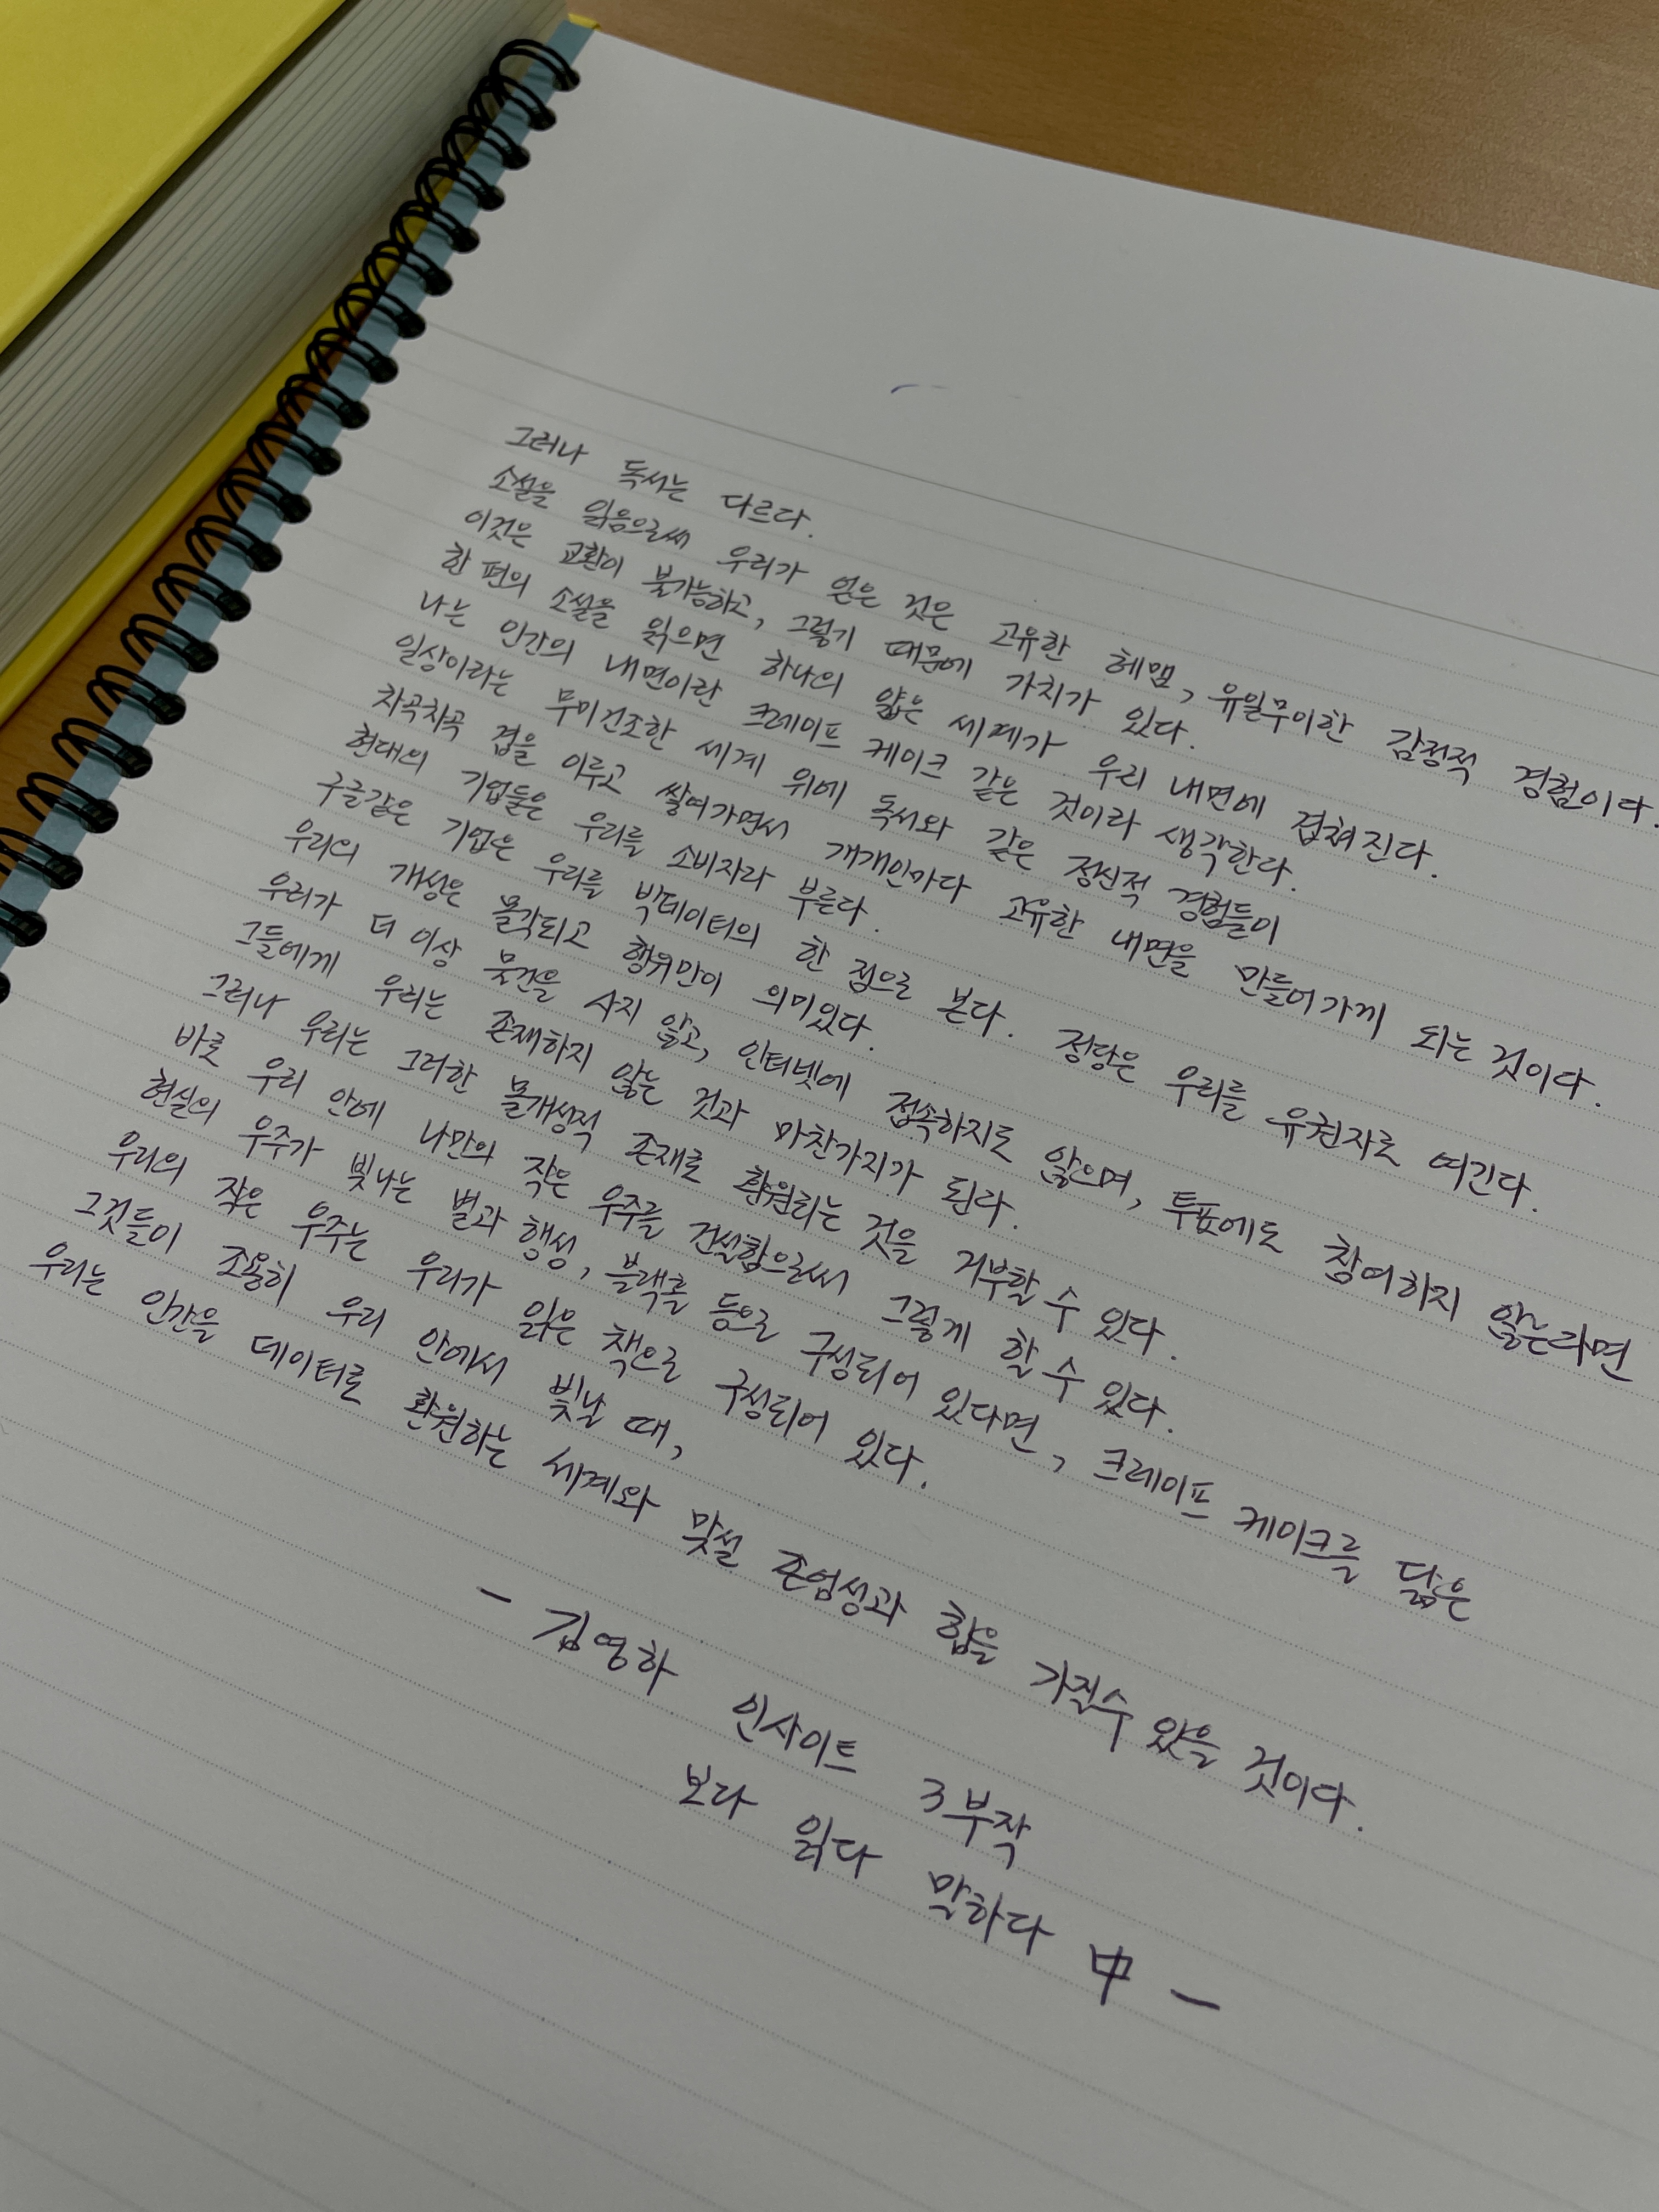 그러나 독서는 다르다.
소설을 읽음으로써 우리가 얻은 것은 고유한 헤맴, 유일무이한 감정적 경험이다.
이것은 교환이 불가능하고, 그렇기 때문에 가치가 있다.
한 편의 소설을 읽으면 하나의 얇은 세계가 우리 내면에 겹쳐진다.
나는 인간의 내면이란 크레이프 케이크 같은 것이라 생각한다.
일상이라는 무미건조한 세계 위에 독서와 같은 정신적 경험들이
차곡차곡 겹을 이루고 쌓여가면서 개개인마다 고유한 내면을 만들어가게 되는 것이다.
현대의 기업들은 우리를 소비자라 부른다.
구글같은 기업은 우리를 빅데이터의 한 점으로 본다. 정당은 우리를 유권자로 여긴다.
우리의 개성은 몰각되고 행위만이 의미있다.
우리가 더 이상 물건을 사지 않고, 인터넷에 접속하지도 않으며, 투표에도 참여하지 않는다면
그들에게 우리는 존재하지 않는 것과 마찬가지가 된다.
그러나 우리는 그러한 몰개성적 존재로 환원되는 것을 거부할 수 있다.
바로 우리 안에 나만의 작은 우주를 건설함으로써 그렇게 할 수 있다.
현실의 우주가 빛나는 별과 행성, 블랙홀 등으로 구성되어 있다면, 크레이프 케이크를 닮은
우리의 작은 우주는 우리가 읽은 책으로 구성되어 있다.
그것들이 조용히 우리 안에서 빛날 때,
우리는 인간을 데이터로 환원하는 세계와 맞설 존엄성과 힘을 가질수 있을 것이다.
- 김영하 인사이트 3부작
보다 읽다 말하다 中 -